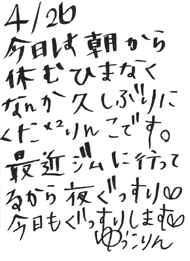 4/26
今日は朝から
休むひまなく
なんか久しぶりに
くた×2りんこです。
最近ジムに行って
るから夜ぐっすり♡
今日もぐっすりします♡
ゆうこりん